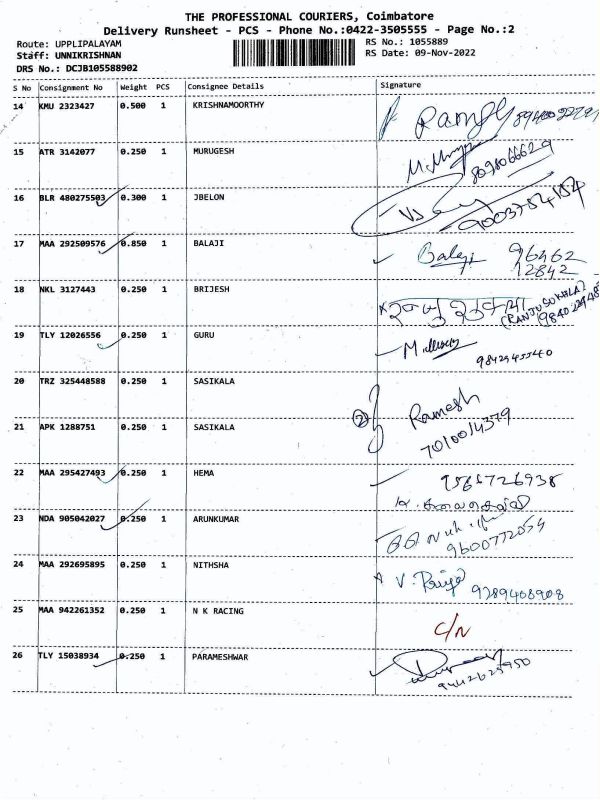 THE PROFESSIONAL COURIERS, Coimbatore
Delivery Runsheet - PCS - Phone No.:0422-3505555 - Page No.:2
Route: UPPLIPALAYAM
RS No.: 1055889
Staff: UNNIKRISHNAN
RS Date: 09-Nov-2022
DRS No.: DCJB105588902
S No Consignment No Weight PCS Consignee Details Signature
14 KMU 2323427 0.500 1 KRISHNAMOORTHY
15 ATR 3142077 0.250 1 MURUGESH
8098066629
16 BLR 480275503 0.300 1 JBELON
17 MAA 292509576 0.850 1 BALAJI Balaji 96462
12842
18 NKL 3127443 0.250 1 BRIJESH
19 TLY 12026556 0.250 1 GURU
20 TRZ 325448588 0.250 1 SASIKALA
21 APK 1288751 0.250 1 SASIKALA ② Ramesh
7010014379
22 MAA 295427493 0.250 1 HEMA
23 NDA 905042027 0.250 1 ARUNKUMAR
9600772054
24 MAA 292695895 0.250 1 NITHSHA
9289408908
25 MAA 942261352 0.250 1 N K RACING C/N
26 TLY 15038934 0.250 1 PARAMESHWAR